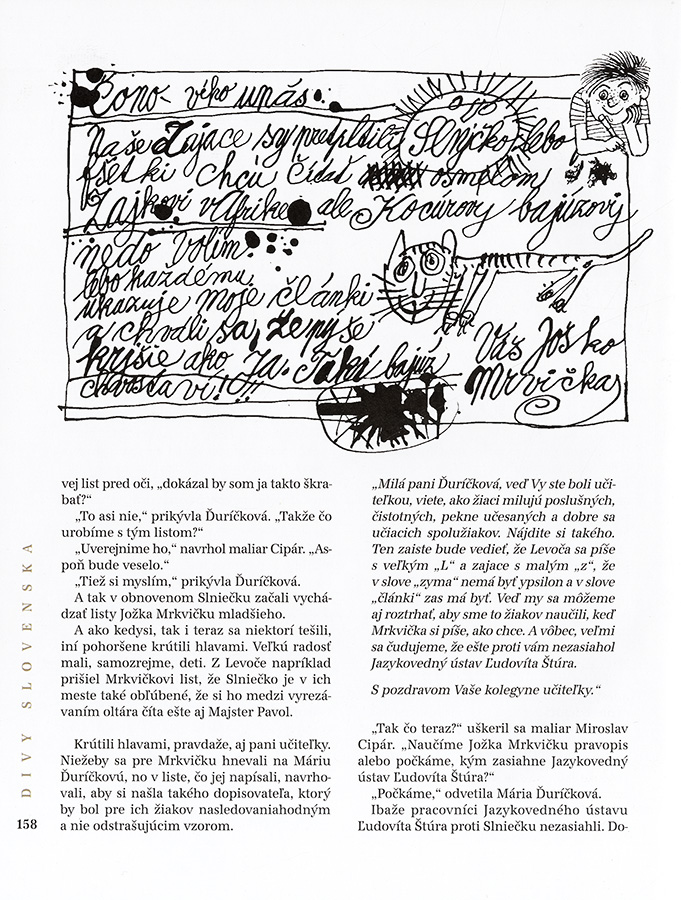 Cono- vého unás.
Naše Zajace sy pretplatili Slnyčko lebo
fšetki chcú čidať osmelom
Zajkovi vAfrike ale Kocúrovy bajúzovy
nedo volím.
lebo každému
ukazuje moje članki
a chvali sa, že pyše
krjšie ako Ja. Taki bajúz
chvastaví!!!
Váš Joško
Mrvička
vej list pred oči, „dokázal by som ja takto škra-
bať?“
„To asi nie,“ prikývla Ďuríčková. „Takže čo
urobíme s tým listom?“
„Uverejnime ho,“ navrhol maliar Cipár. „As-
poň bude veselo.“
„Tiež si myslím,“ prikývla Ďuríčková.
A tak v obnovenom Slniečku začali vychá-
dzať listy Jožka Mrkvičku mladšieho.
A ako kedysi, tak i teraz sa niektorí tešili,
iní pohoršene krútili hlavami. Veľkú radosť
mali, samozrejme, deti. Z Levoče napríklad
prišiel Mrkvičkovi list, že Slniečko je v ich
meste také obľúbené, že si ho medzi vyrezá-
vaním oltára číta ešte aj Majster Pavol.
Krútili hlavami, pravdaže, aj pani učiteľky.
Niežeby sa pre Mrkvičku hnevali na Máriu
Ďuríčkovú, no v liste, čo jej napísali, navrho-
vali, aby si našla takého dopisovateľa, ktorý
by bol pre ich žiakov nasledovaniahodným
a nie odstrašujúcim vzorom.
„Milá pani Ďuríčková, veď Vy ste boli uči-
teľkou, viete, ako žiaci milujú poslušných,
čistotných, pekne učesaných a dobre sa
učiacich spolužiakov. Nájdite si takého.
Ten zaiste bude vedieť, že Levoča sa píše
s veľkým „L“ a zajace s malým „z“, že
v slove „zyma“ nemá byť ypsilon a v slove
„članki“ zas má byť. Veď my sa môžeme
aj roztrhať, aby sme to žiakov naučili, keď
Mrkvička si píše, ako chce. A vôbec, veľmi
sa čudujeme, že ešte proti vám nezasiahol
Jazykovedný ústav Ľudovíta Štúra.
S pozdravom Vaše kolegyne učiteľky.“
„Tak čo teraz?“ uškeril sa maliar Miroslav
Cipár. „Naučíme Jožka Mrkvičku pravopis
alebo počkáme, kým zasiahne Jazykovedný
ústav Ľudovíta Štúra?“
„Počkáme,“ odvetila Mária Ďuríčková.
Ibaže pracovníci Jazykovedného ústavu
Ľudovíta Štúra proti Slniečku nezasiahli. Do-
DIVY SLOVENSKA
158